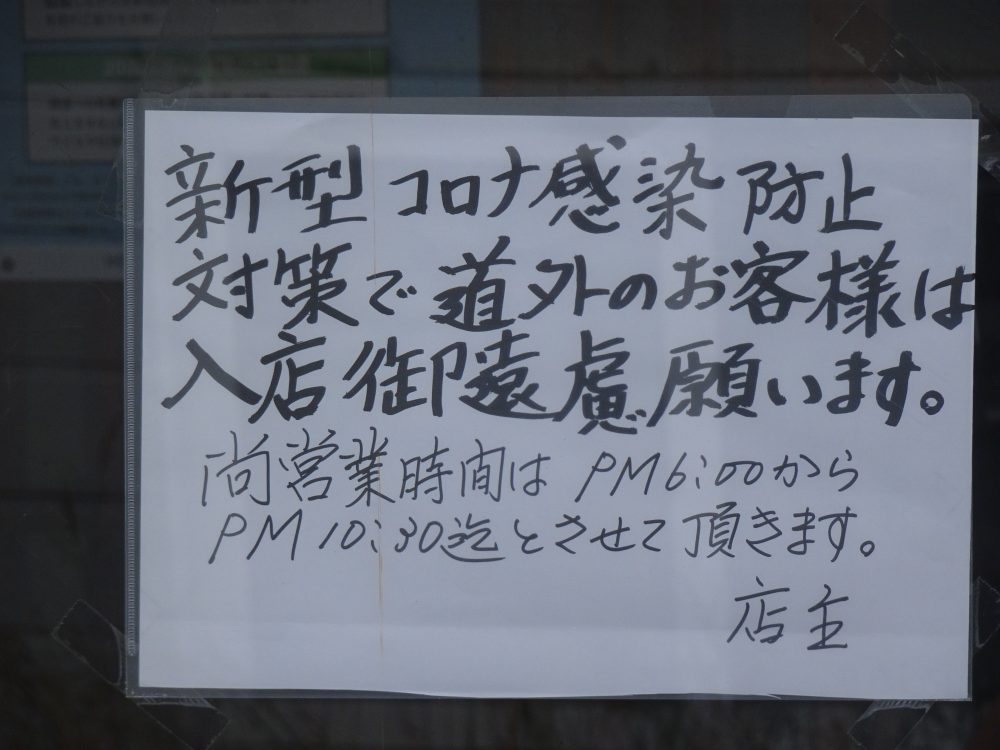 新型コロナ感染防止
対策で道外のお客様は
入店御遠慮願います。
尚営業時間は PM6:00から
PM10:30迄とさせて頂きます。
店主